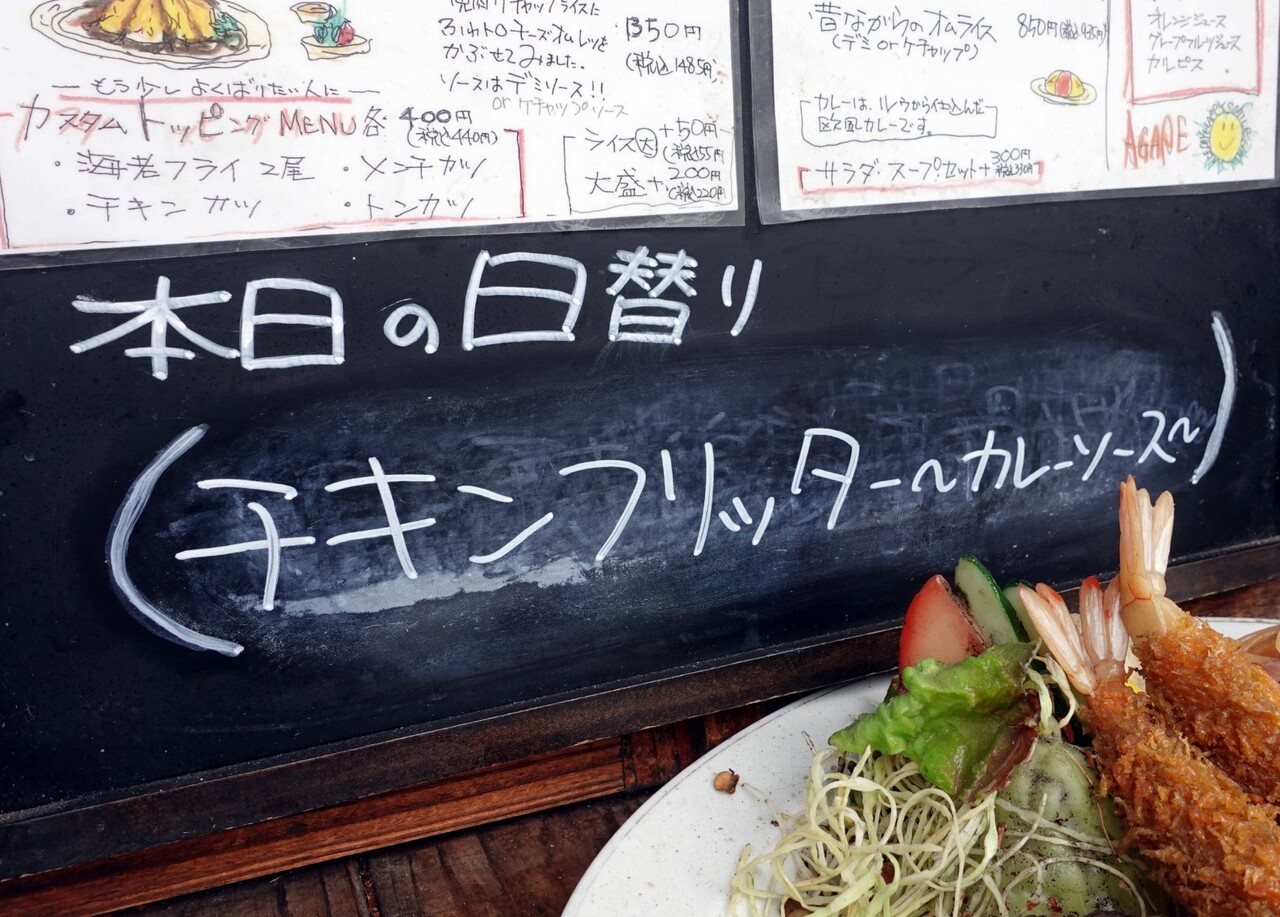 焼肉ケチャップライスに
ふわトロチーズオムレツを
かぶせてみました。
ソースはデミソース!!
or ケチャップソース
1350円
(税込1485円)
もう少しよくばりたい人に
カスタムトッピングMENU 各400円
(税込440円)
・海老フライ2尾 ・メンチカツ
・チキンカツ ・トンカツ
+50円
(税込55円)
大盛+200円
(税込220円)
昔ながらのオムライス 850円(税込935円)
(デミ or ケチャップ)
カレーは、ルウから仕込んだ
欧風カレーです。
サラダ・スープセット+300円
税込330円
オレンジジュース
グレープフルーツジュース
カルピス
本日の日替り
(チキンフリッター〜カレーソース〜)